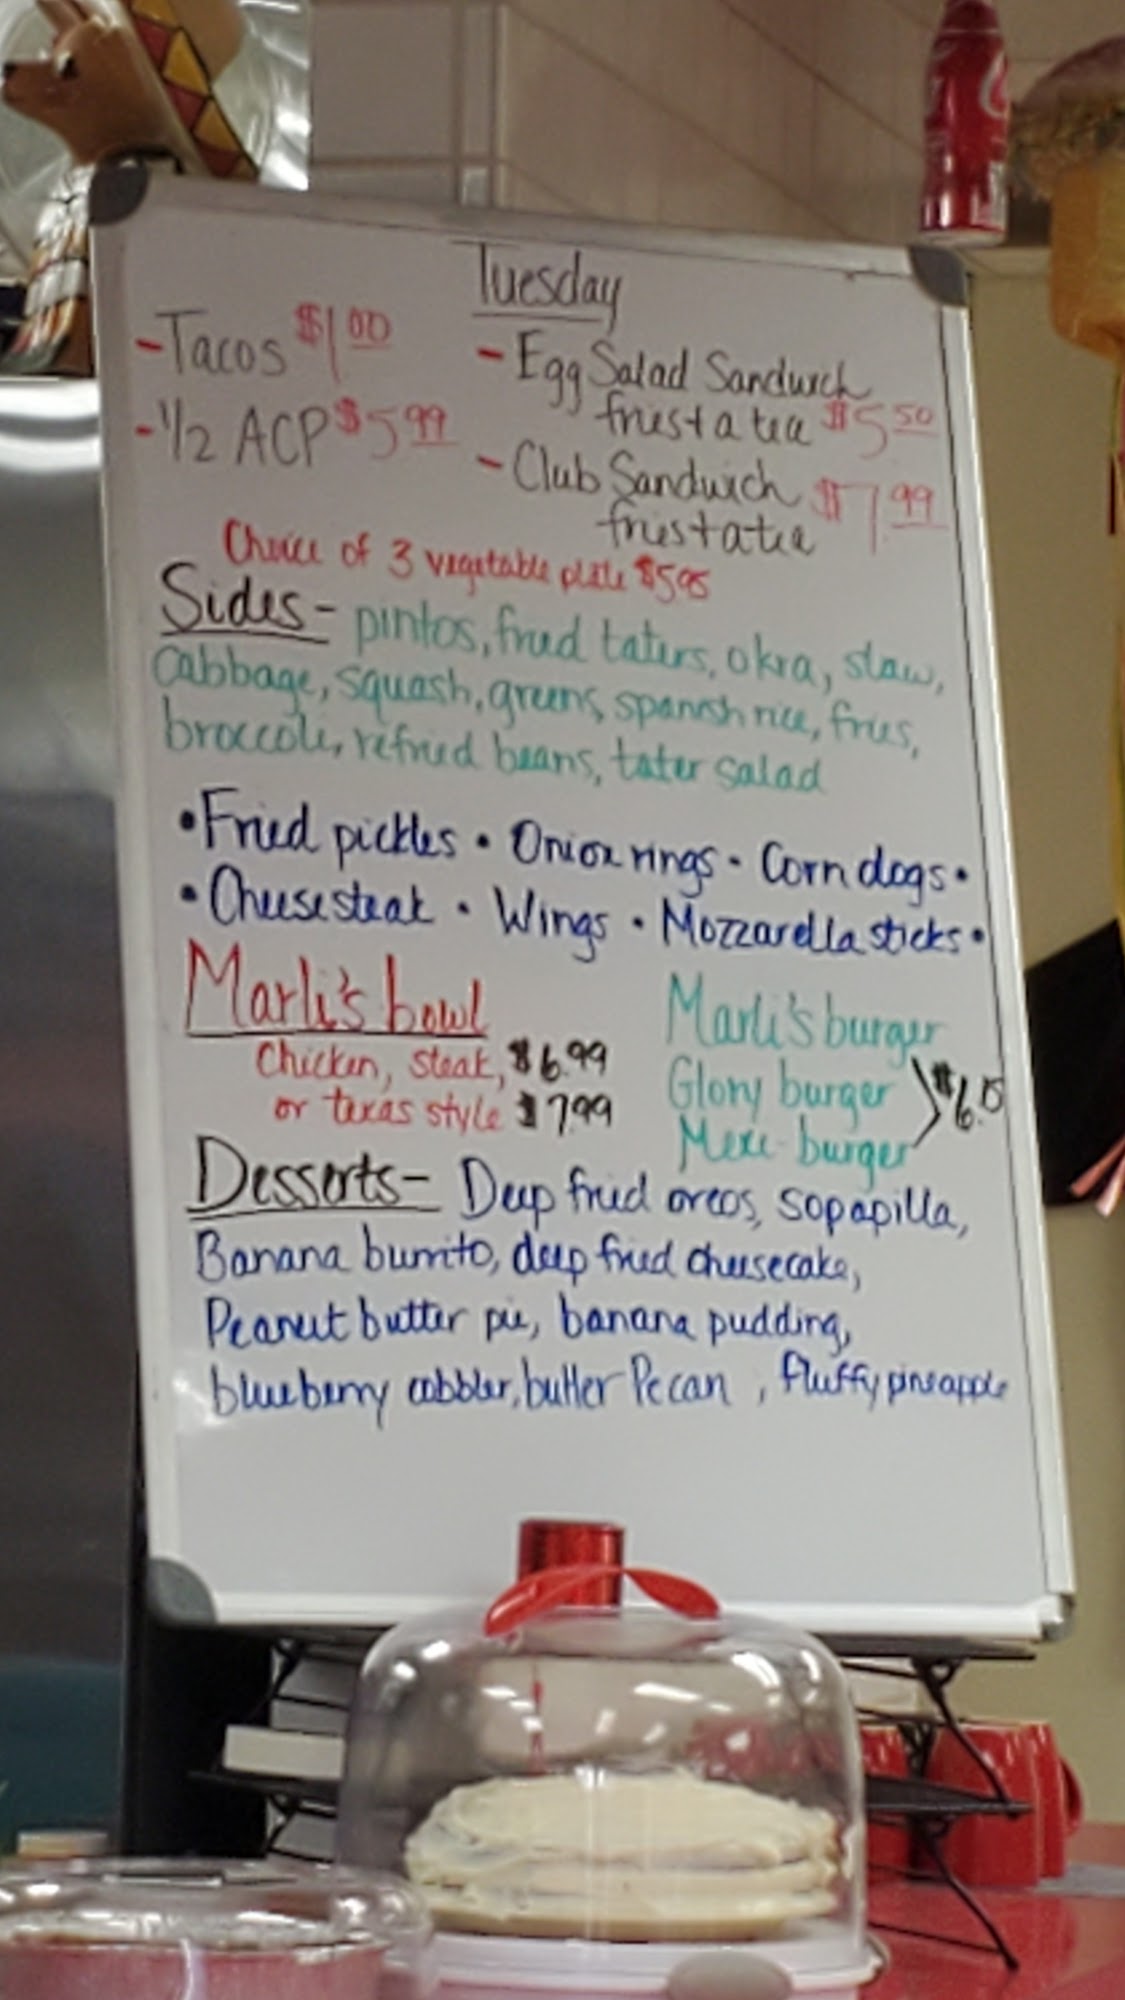 Tuesday
-Tacos $1.00
-1/2 ACP $5.99
-Egg Salad Sandwich
fries + a tea $5.50
-Club Sandwich
fries + a tea $7.99
Choice of 3 vegetable plate $5.95
Sides- pintos, fried taters, okra, slaw,
cabbage, squash, greens, spanish rice, fries,
broccoli, refried beans, tater salad
•Fried pickles • Onion rings • Corn dogs •
•Cheesesteak • Wings • Mozzarella sticks •
Marli's bowl
Chicken, steak, $6.99
or texas style $7.99
Marli's burger
Glory burger
Mexi-burger
Desserts- Deep fried oreos, sopapilla,
Banana burrito, deep fried cheesecake,
Peanut butter pie, banana pudding,
blueberry cobbler, butter Pecan, fluffy pineapple